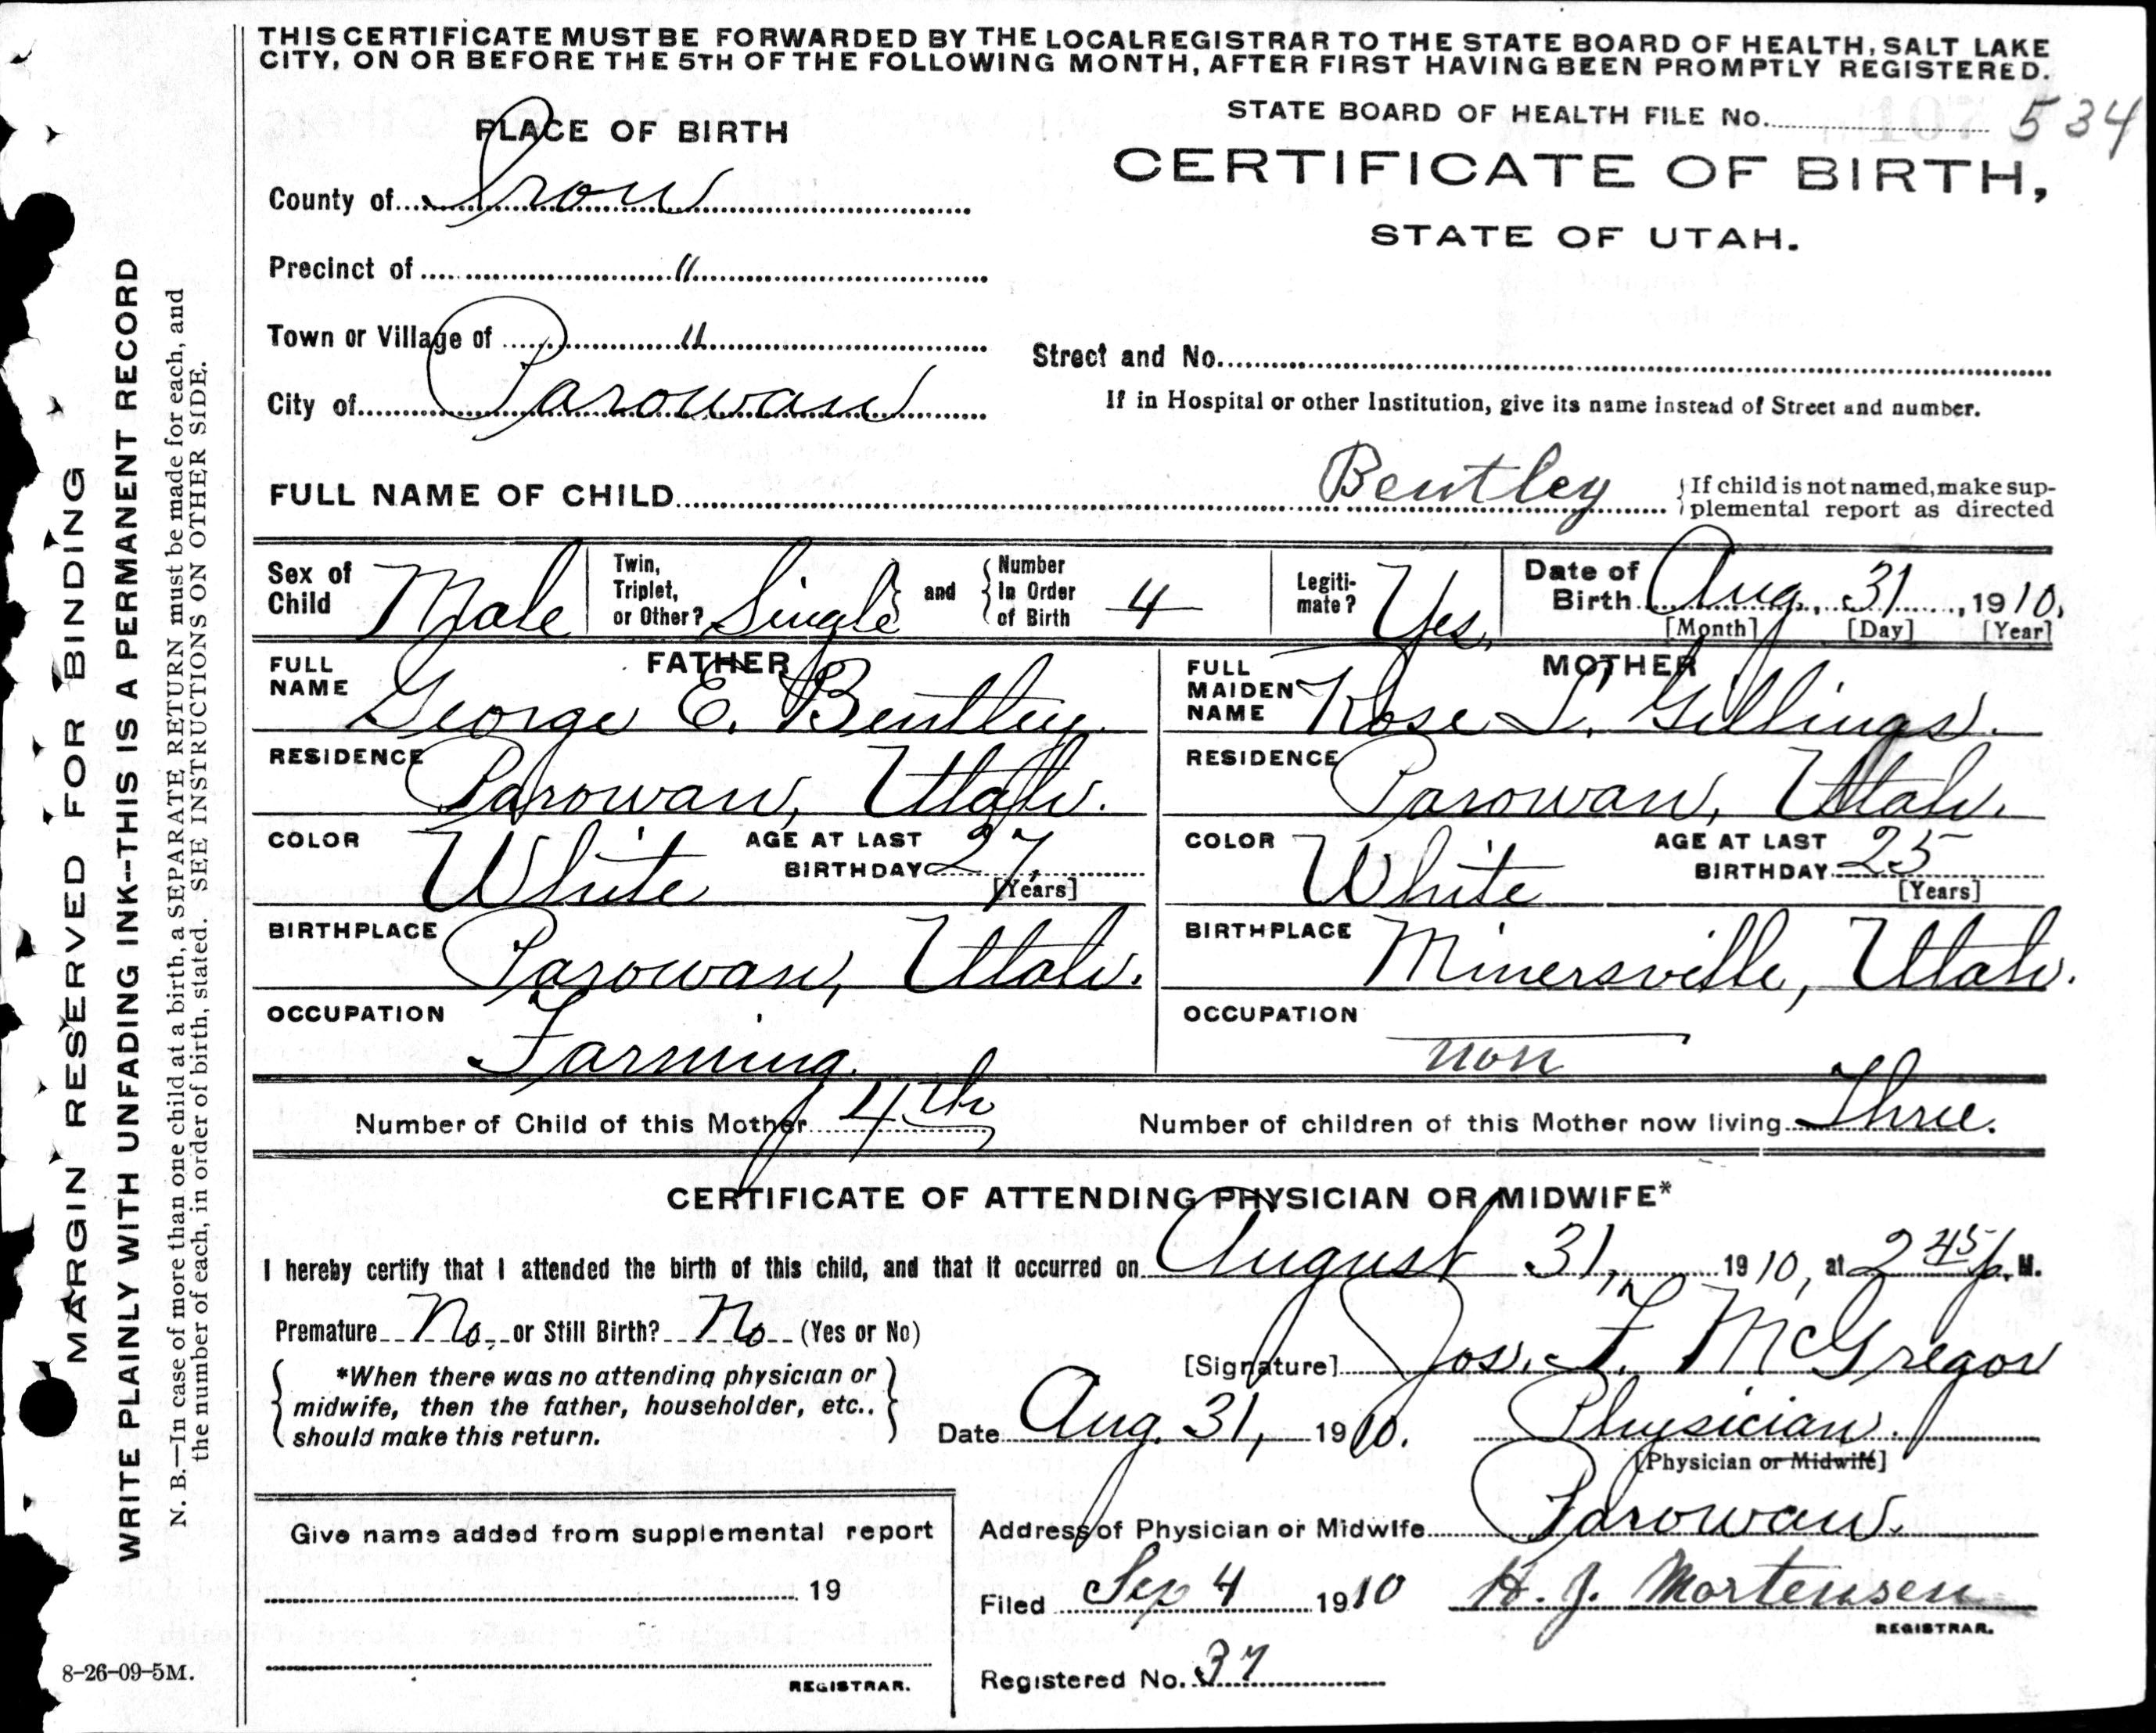 THIS CERTIFICATE MUST BE FORWARDED BY THE LOCAL REGISTRAR TO THE STATE BOARD OF HEALTH, SALT LAKE
CITY, ON OR BEFORE THE 5TH OF THE FOLLOWING MONTH, AFTER FIRST HAVING BEEN PROMPTLY REGISTERED.
STATE BOARD OF HEALTH FILE No. 534
PLACE OF BIRTH
CERTIFICATE OF BIRTH,
STATE OF UTAH.
County of Iron
Precinct of "
Town or Village of "
City of Parowan
Street and No.
If in Hospital or other Institution, give its name instead of Street and number.
FULL NAME OF CHILD Bentley
If child is not named, make sup-
plemental report as directed
Sex of Child Male
Twin, Triplet, or Other? Single and Number in Order of Birth 4
Legiti-mate? Yes,
Date of Birth Aug., 31, 1910,
[Month] [Day] [Year]
FATHER
FULL NAME George E. Bentley.
RESIDENCE Parowan, Utah.
COLOR White AGE AT LAST BIRTHDAY 27, [Years]
BIRTHPLACE Parowan, Utah.
OCCUPATION Farming.
MOTHER
FULL MAIDEN NAME Rose L. Gillings.
RESIDENCE Parowan, Utah.
COLOR White AGE AT LAST BIRTHDAY 25 [Years]
BIRTHPLACE Minersville, Utah.
OCCUPATION non
Number of Child of this Mother 4th Number of children of this Mother now living Three.
CERTIFICATE OF ATTENDING PHYSICIAN OR MIDWIFE*
I hereby certify that I attended the birth of this child, and that it occurred on August 31, 1910, at 2 45 p. M.
Premature No, or Still Birth? No (Yes or No)
*When there was no attending physician or
midwife, then the father, householder, etc.,
should make this return.
[Signature] Jos. F. McGregor
Date Aug. 31, 1910. Physician.
[Physician or Midwife]
Address of Physician or Midwife Parowan.
Filed Sep 4 1910 H. J. Mortensen
REGISTRAR.
Registered No. 37
Give name added from supplemental report
19
REGISTRAR.
8-26-09-5M.
MARGIN RESERVED FOR BINDING
WRITE PLAINLY WITH UNFADING INK--THIS IS A PERMANENT RECORD
N. B.—In case of more than one child at a birth, a SEPARATE RETURN must be made for each, and
the number of each, in order of birth, stated. SEE INSTRUCTIONS ON OTHER SIDE.